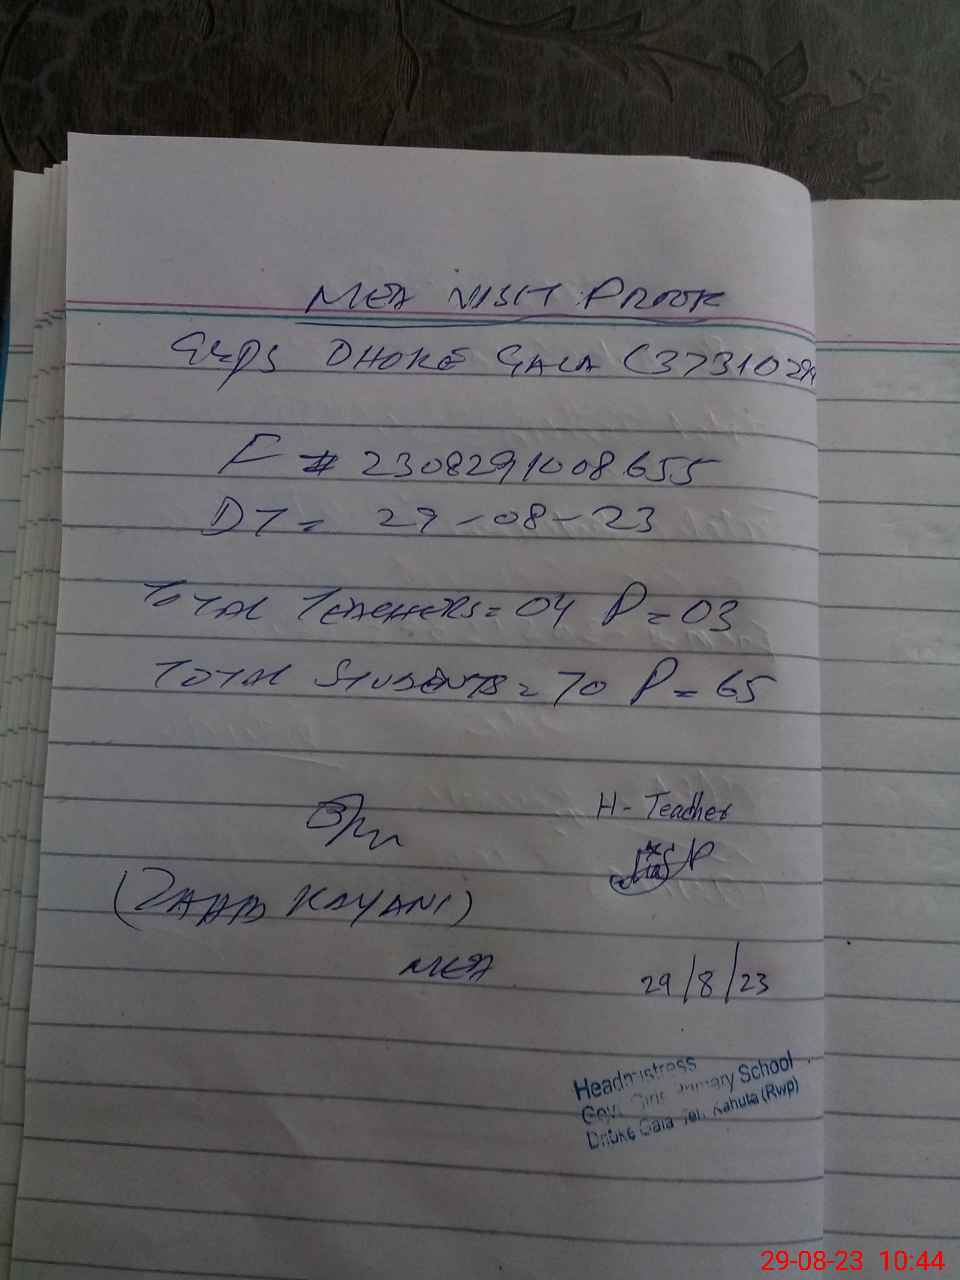 MEA VISIT PROOF
GGPS DHOKE GALA (37310294
F # 2308291008655
DT = 29-08-23
TOTAL TEACHERS = 04 P = 03
TOTAL STUDENTS = 70 P = 65
H- Teacher
(ZAHB KAYANI)
MEA
29/8/23
Headmistress
Govt Girls Primary School
Dhoke Gala Teh. Kahuta (Rwp)
29-08-23 10:44